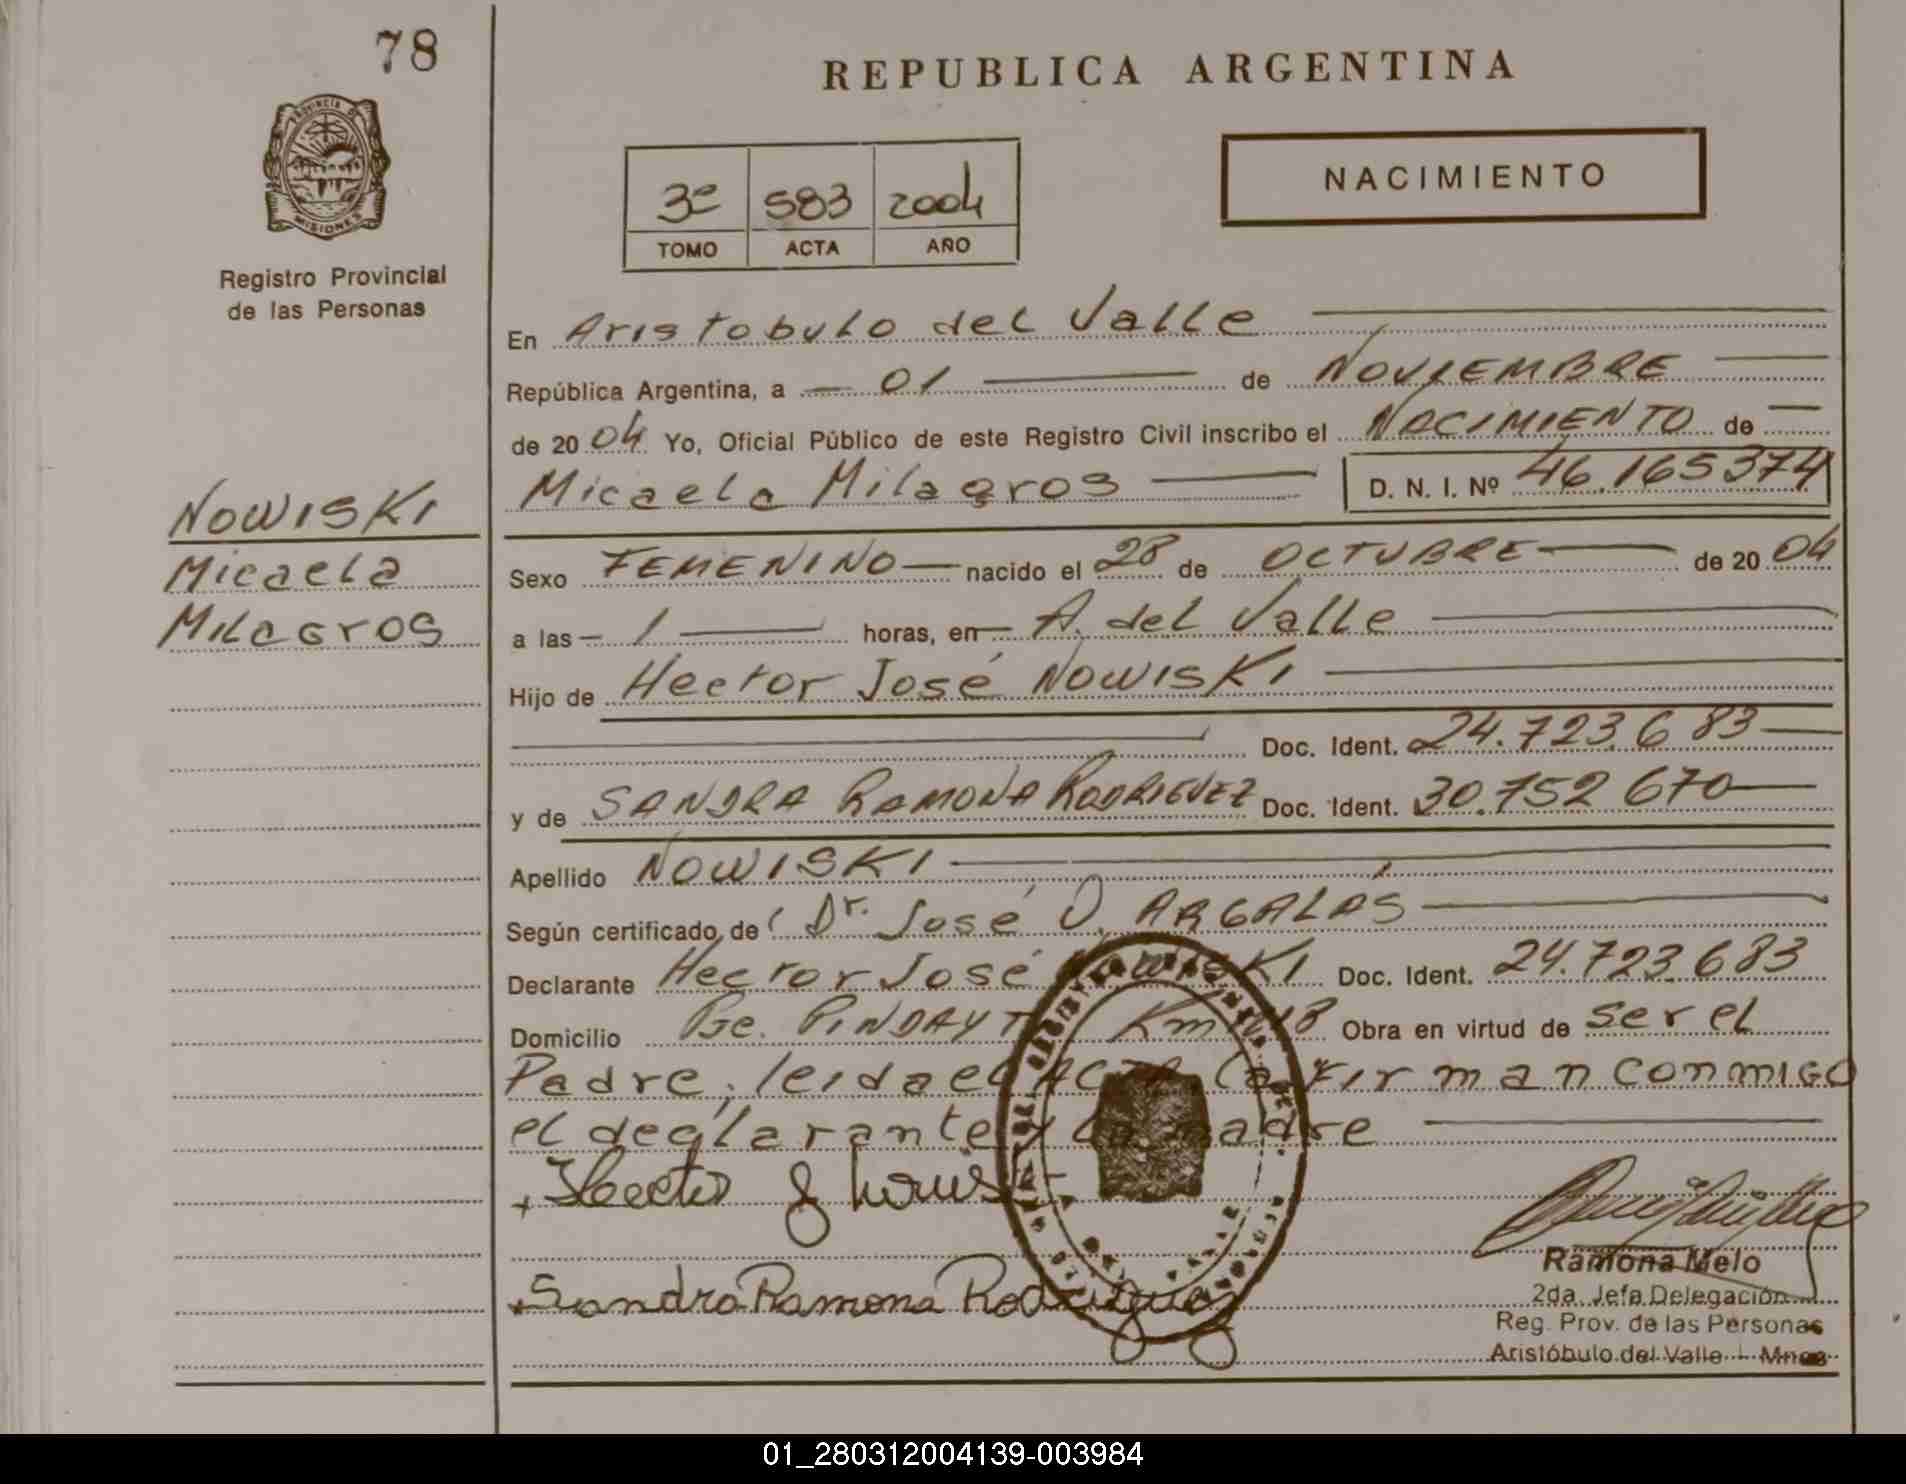 78
REPUBLICA ARGENTINA
PROVINCIA DE
MISIONES
Registro Provincial
de las Personas
3º 583 2004
TOMO ACTA AÑO
NACIMIENTO
En Aristobulo del Valle
República Argentina, a 01 de NOVIEMBRE
de 2004 Yo, Oficial Público de este Registro Civil inscribo el NACIMIENTO de
Micaela Milagros D. N. I. Nº 46.165374
NOWISKI
Micaela
Milagros
Sexo FEMENINO nacido el 28 de OCTUBRE de 2004
a las 1 horas, en A. del Valle
Hijo de Hector José NOWISKI
Doc. Ident. 24.723.683
y de SANDRA RAMONA RODRIGUEZ Doc. Ident. 30.752670
Apellido NOWISKI
Según certificado de Dr. José O. ARGALAS
Declarante Hector José NOWISKI Doc. Ident. 24.723.683
Domicilio Pje. PINDAYTI Km Obra en virtud de ser el
Padre, leida el ACTA, la Firman conmigo
el declarante y la madre
Hector J Nowiski
Sandra Ramona Rodriguez
Ramona Melo
2da. Jefa Delegación
Reg. Prov. de las Personas
Aristóbulo del Valle - Mnes
01_280312004139-003984